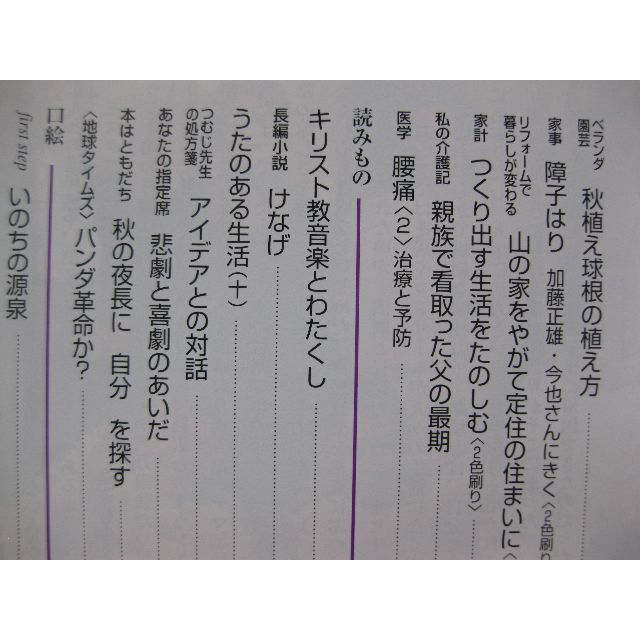 ベランダ園芸 秋植え球根の植え方
家事 障子はり 加藤正雄・今也さんにきく〈2色刷り
リフォームで暮らしが変わる 山の家をやがて定住の住まいに〈
家計 つくり出す生活をたのしむ〈2色刷り〉
私の介護記 親族で看取った父の最期
医学 腰痛〈2〉治療と予防
読みもの
キリスト教音楽とわたくし
長編小説 けなげ
うたのある生活(十)
つむじ先生の処方箋 アイデアとの対話
あなたの指定席 悲劇と喜劇のあいだ
本はともだち 秋の夜長に 自分 を探す
〈地球タイムズ〉パンダ革命か?
口絵
first step いのちの源泉